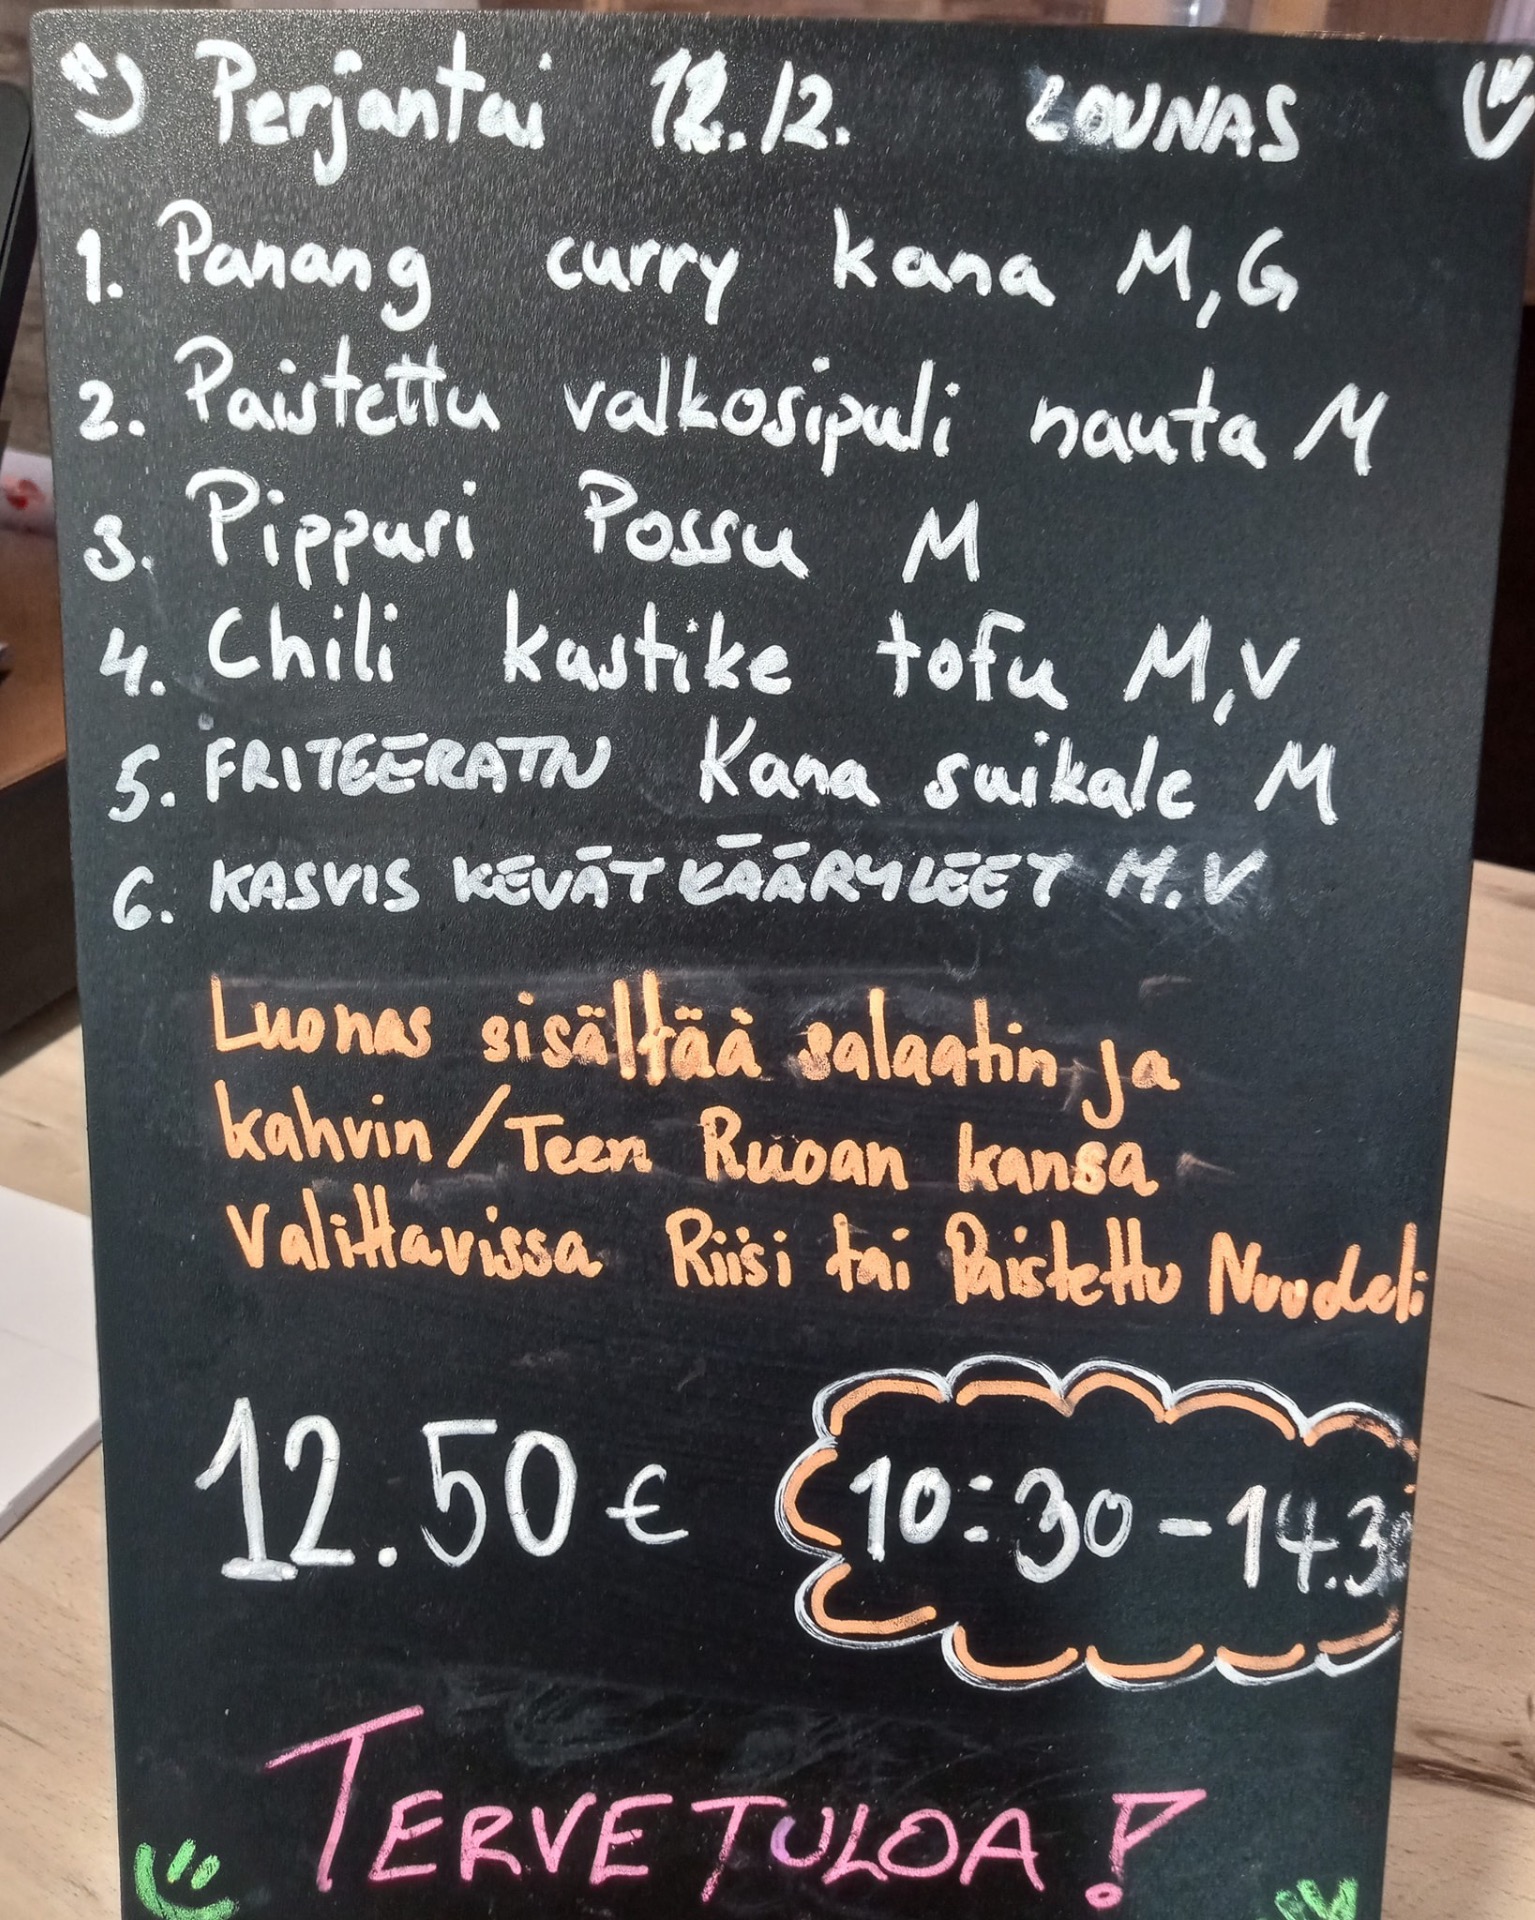 Perjantai 12.12. LOUNAS
1. Panang curry kana M,G
2. Paistettu valkosipuli nauta M
3. Pippuri Possu M
4. Chili kastike tofu M,V
5. FRITEERATTU Kana suikale M
6. KASVIS KEVÄT KÄÄRYLEET M.V
Luonas sisältää salaatin ja
kahvin/Teen Ruoan kansa
Valittavissa Riisi tai Paistettu Nuudeli
12.50 €
10:30-14.30
TERVETULOA!